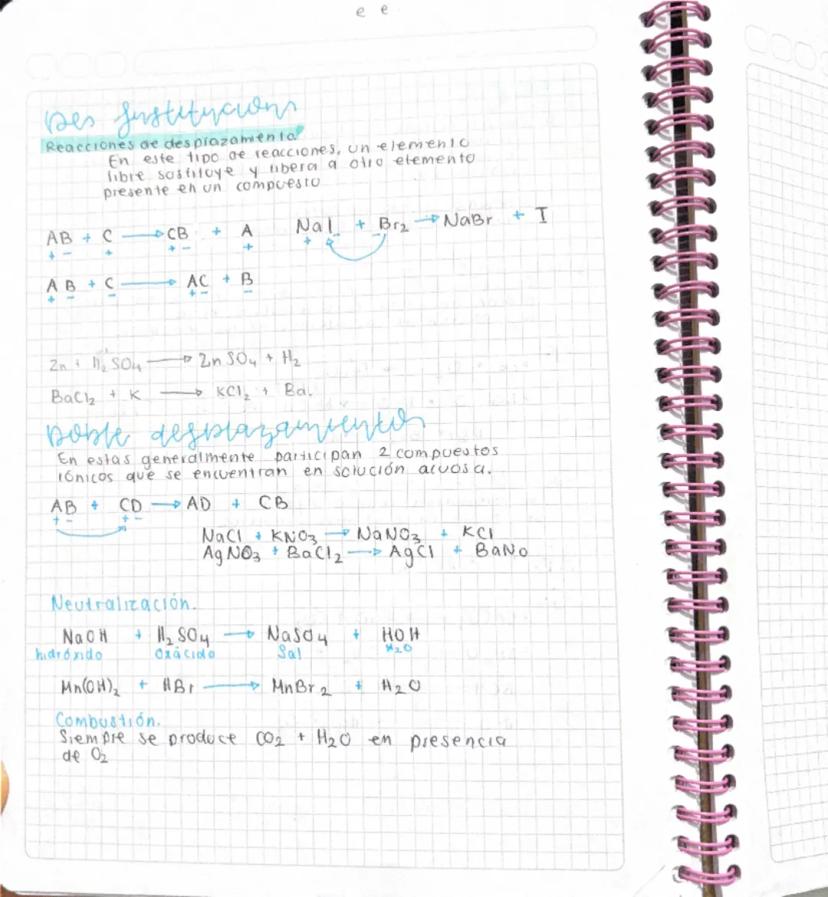 e e
Des sustitucion
Reacciones de desplazamiento
En este tipo de reacciones, un elemento
libre sustituye y libera a otro elemento
presente en un compuesto
AB + C → CB + A
+ - + + - +
NaI + Br2 → NaBr + I
+ -
AB + C → AC + B
+ - - + - -
Zn + H2SO4 → ZnSO4 + H2
BaCl2 + K → KCl2 + Ba.
Doble desplazamiento
En estas generalmente participan 2 compuestos
iónicos que se encuentran en solución acuosa.
AB + CD → AD + CB
+ - + -
NaCl + KNO3 → NaNO3 + KCl
AgNO3 + BaCl2 → AgCl + BaNo
Neutralización.
NaOH + H2SO4 → NaSO4 + HOH
hidróxido oxácido sal H2O
Mn(OH)2 + HBr → MnBr2 + H2O
Combustión.
Siempre se produce CO2 + H2O en presencia
de O2